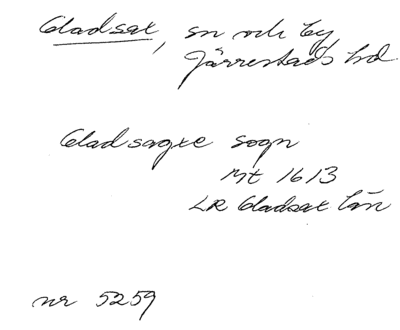 Gladsax, sn och by
Järrestads hd
Gladsagxe sogn
Mt 1613
LR Gladsax län
nr 5259